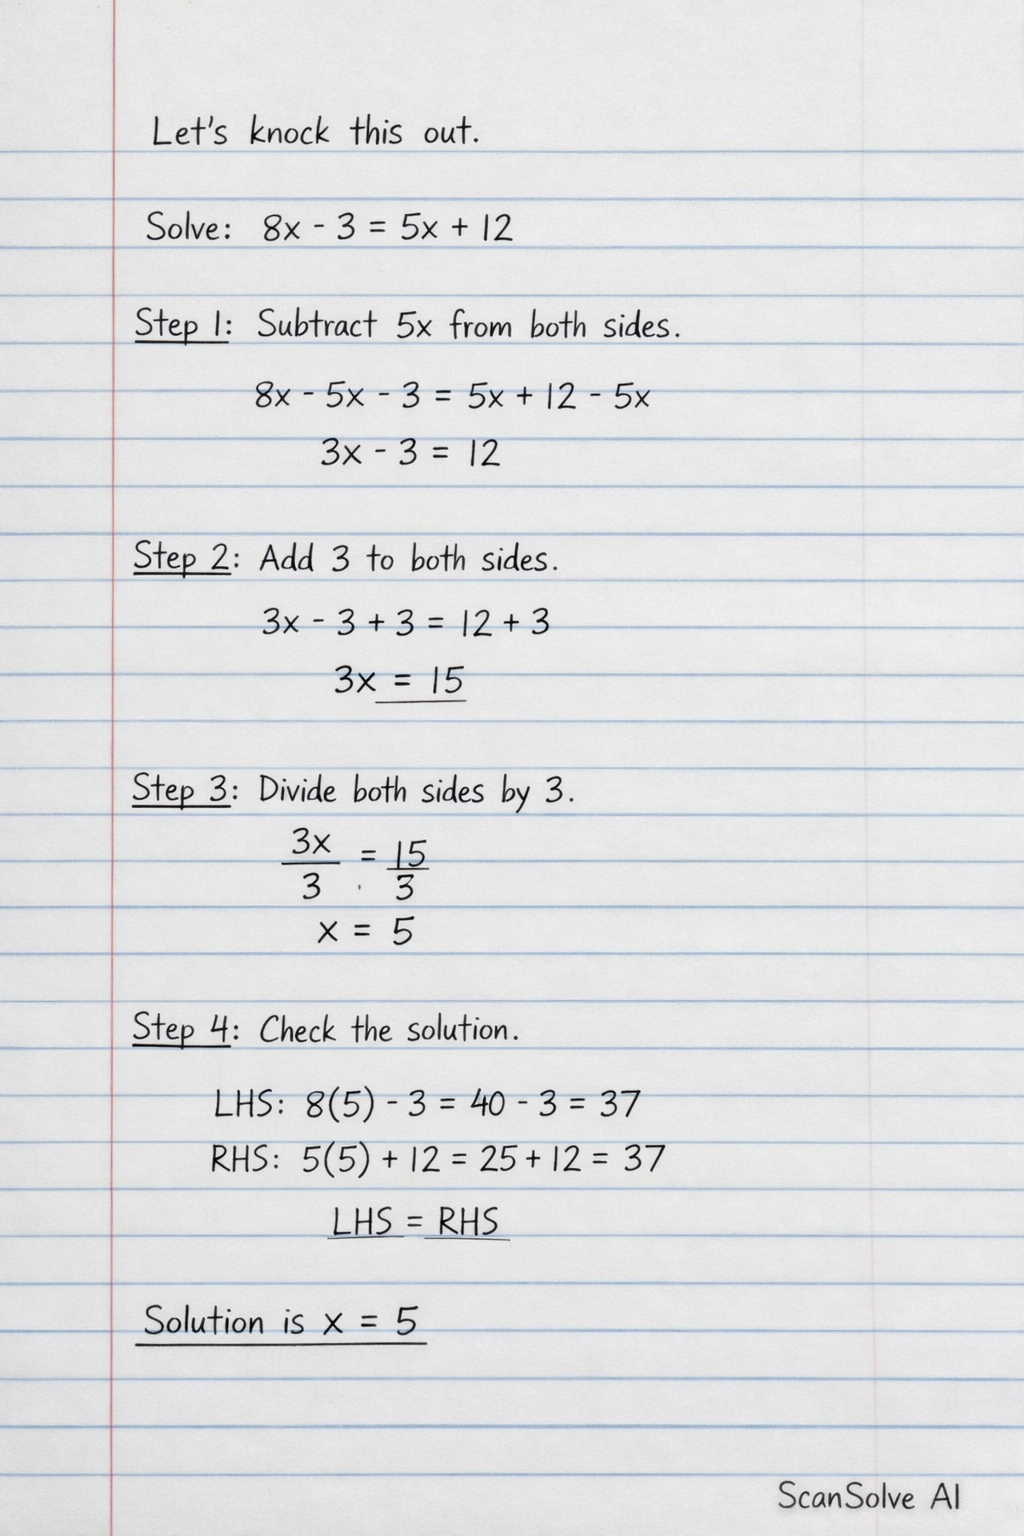 Let's knock this out.
Solve: 8x - 3 = 5x + 12
Step 1: Subtract 5x from both sides.
8x - 5x - 3 = 5x + 12 - 5x
3x - 3 = 12
Step 2: Add 3 to both sides.
3x - 3 + 3 = 12 + 3
3x = 15
Step 3: Divide both sides by 3.
3x/3 = 15/3
x = 5
Step 4: Check the solution.
LHS: 8(5) - 3 = 40 - 3 = 37
RHS: 5(5) + 12 = 25 + 12 = 37
LHS = RHS
Solution is x = 5
ScanSolve AI